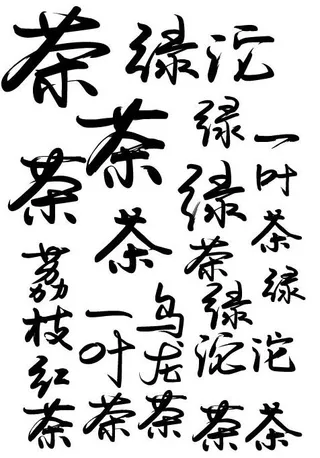 茶
绿沱
茶
茶
茶
绿
一叶茶
绿茶
荔枝红茶
一叶茶
乌龙茶
绿沱茶
绿沱茶